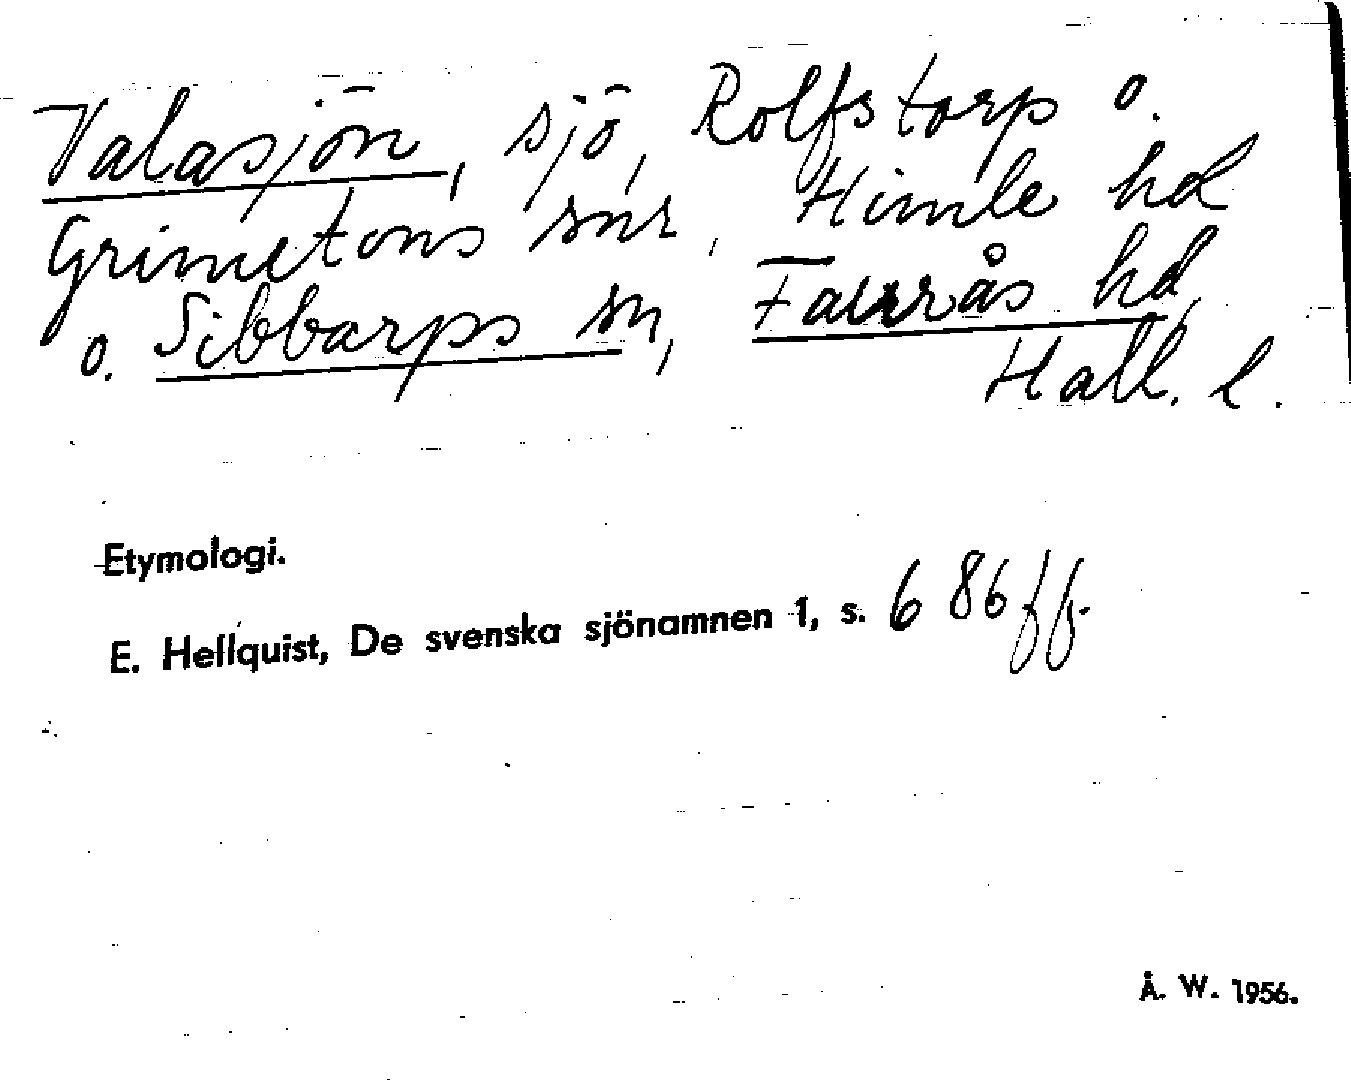 Valasjön, sjö, Rolfstorp o.
Grimetons snr, Himle hd
o. Sibbarps sn, Faurås hd,
Hall. l.
Etymologi.
E. Hellquist, De svenska sjönamnen 1, s. 686 ff.
Å. W. 1956.